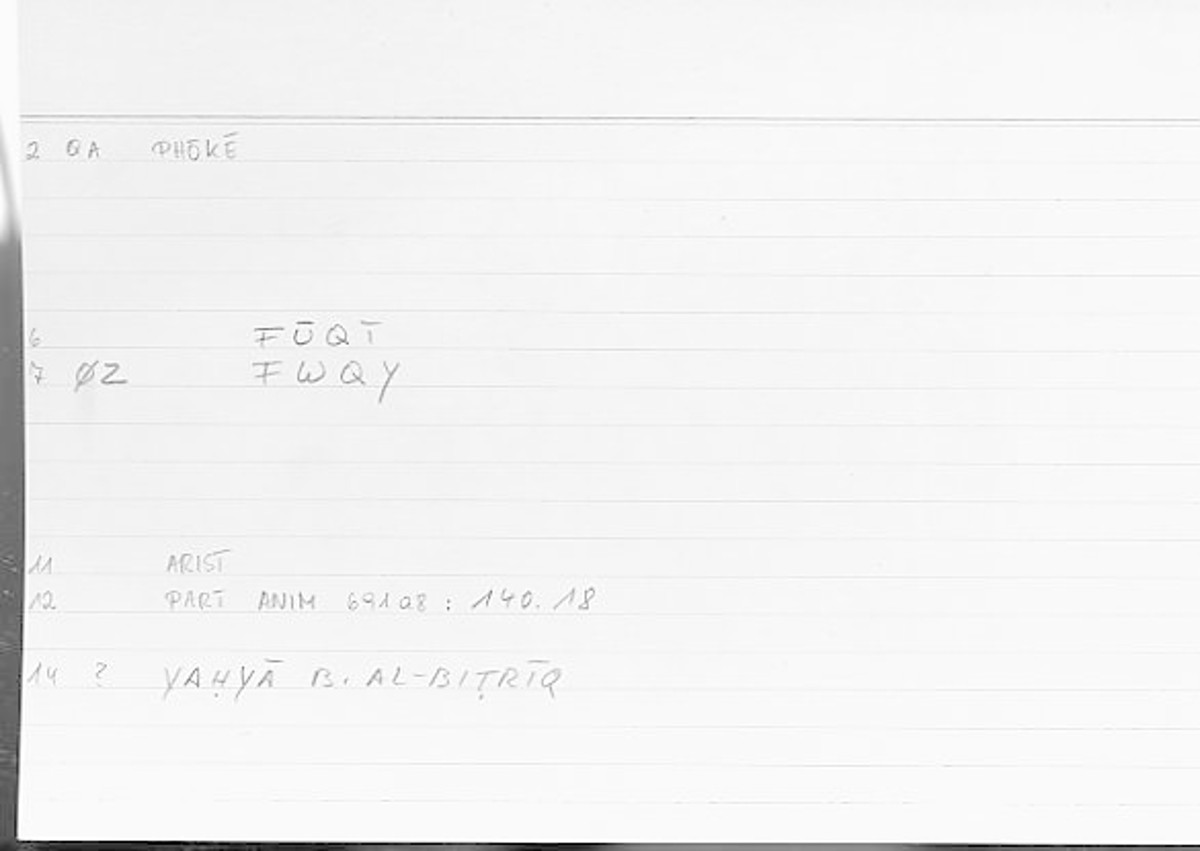 2 QA PHŌKĒ
6 FŪQĪ
7 ØZ FWQY
11 ARIST
12 PART ANIM 691a8 : 140.18
14 ? YAḤYĀ B. AL-BIṬRĪQ